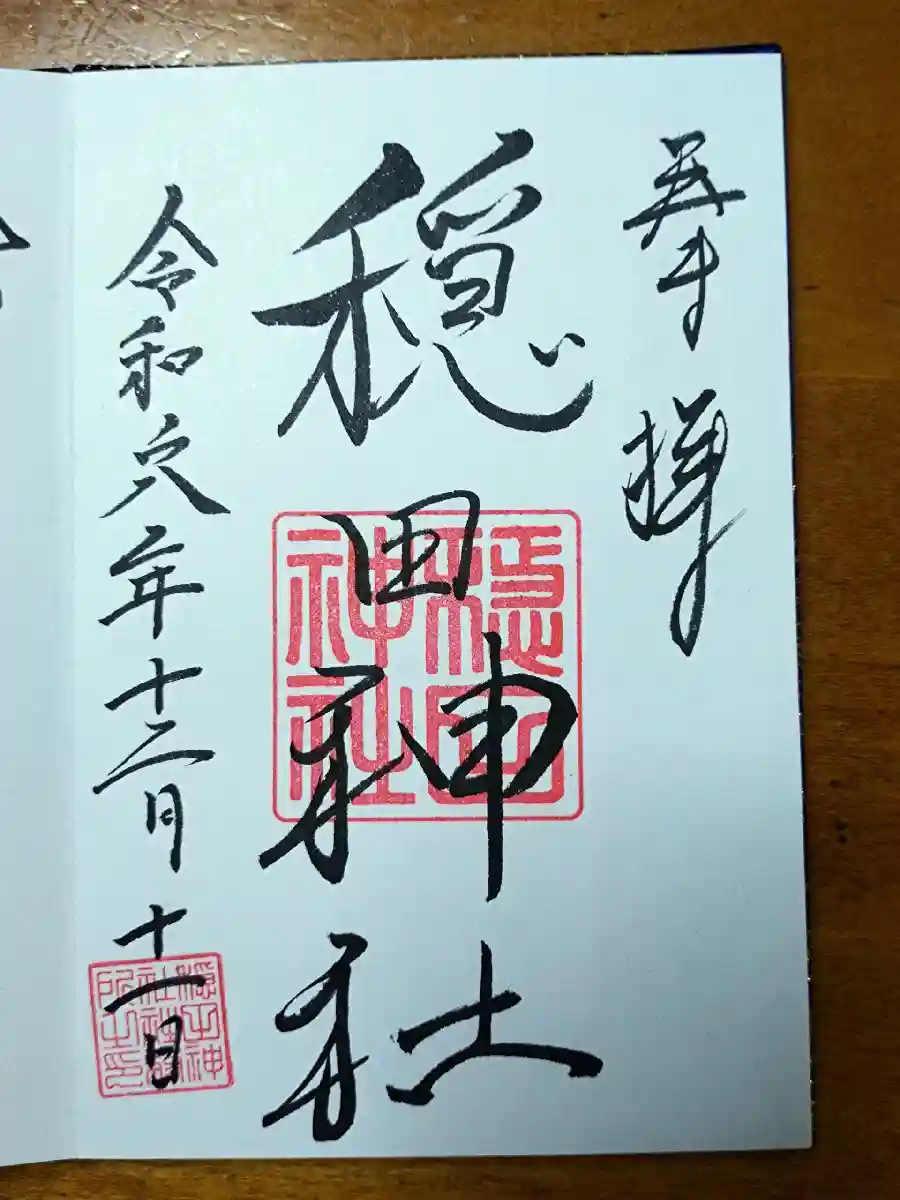 奉拝
穏田神社
令和六年十二月十一日
穏田
神社
穏田神
社社務
所之印